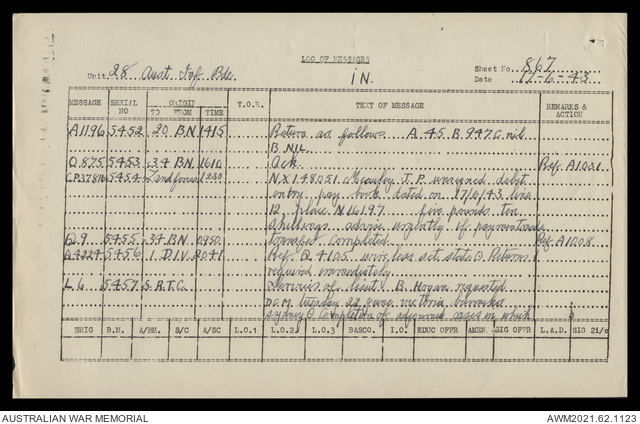 LOG OF MESSAGES
Unit. 28 Aust Inf Bde. IN. Sheet No. 867
Date 17-6-43
MESSAGE SERIAL NO ORIGIN TO FROM TIME T.O.R. TEXT OF MESSAGE REMARKS & ACTION
A1196 5452 20 BN 1415 Return as follows A 45 B 947 C nil
B NIL
O 875 5453 34 BN 1610 Ack. Ref A1031
CP37816 5454 Landforces 1230 NX148051 J.P. unsigned debit
entry pay book dated on 17/6/43 line
12 place N16197 five pounds ten
shillings advise urgently if
transfer completed
Q9 5455 34 BN 0950 Ref A1008
5456 1 DIV 2041 Ref Q 4105 wireless set state @ Returns
required immediately
L6 5457 S.R.T.C. Services of Lieut B. Hogan requested
D.C.M. Tuesday 22 June victoria barracks
Sydney @ Completion of adjourned cases in which
BRIG B.M. A/BM. S/C A/SC L.O.1 L.O.2 L.O.3 BASCO. I.O. EDUC OFFR AMEN. SIG OFFR L.A.D. SIG 21/c
AUSTRALIAN WAR MEMORIAL AWM2021.62.1123